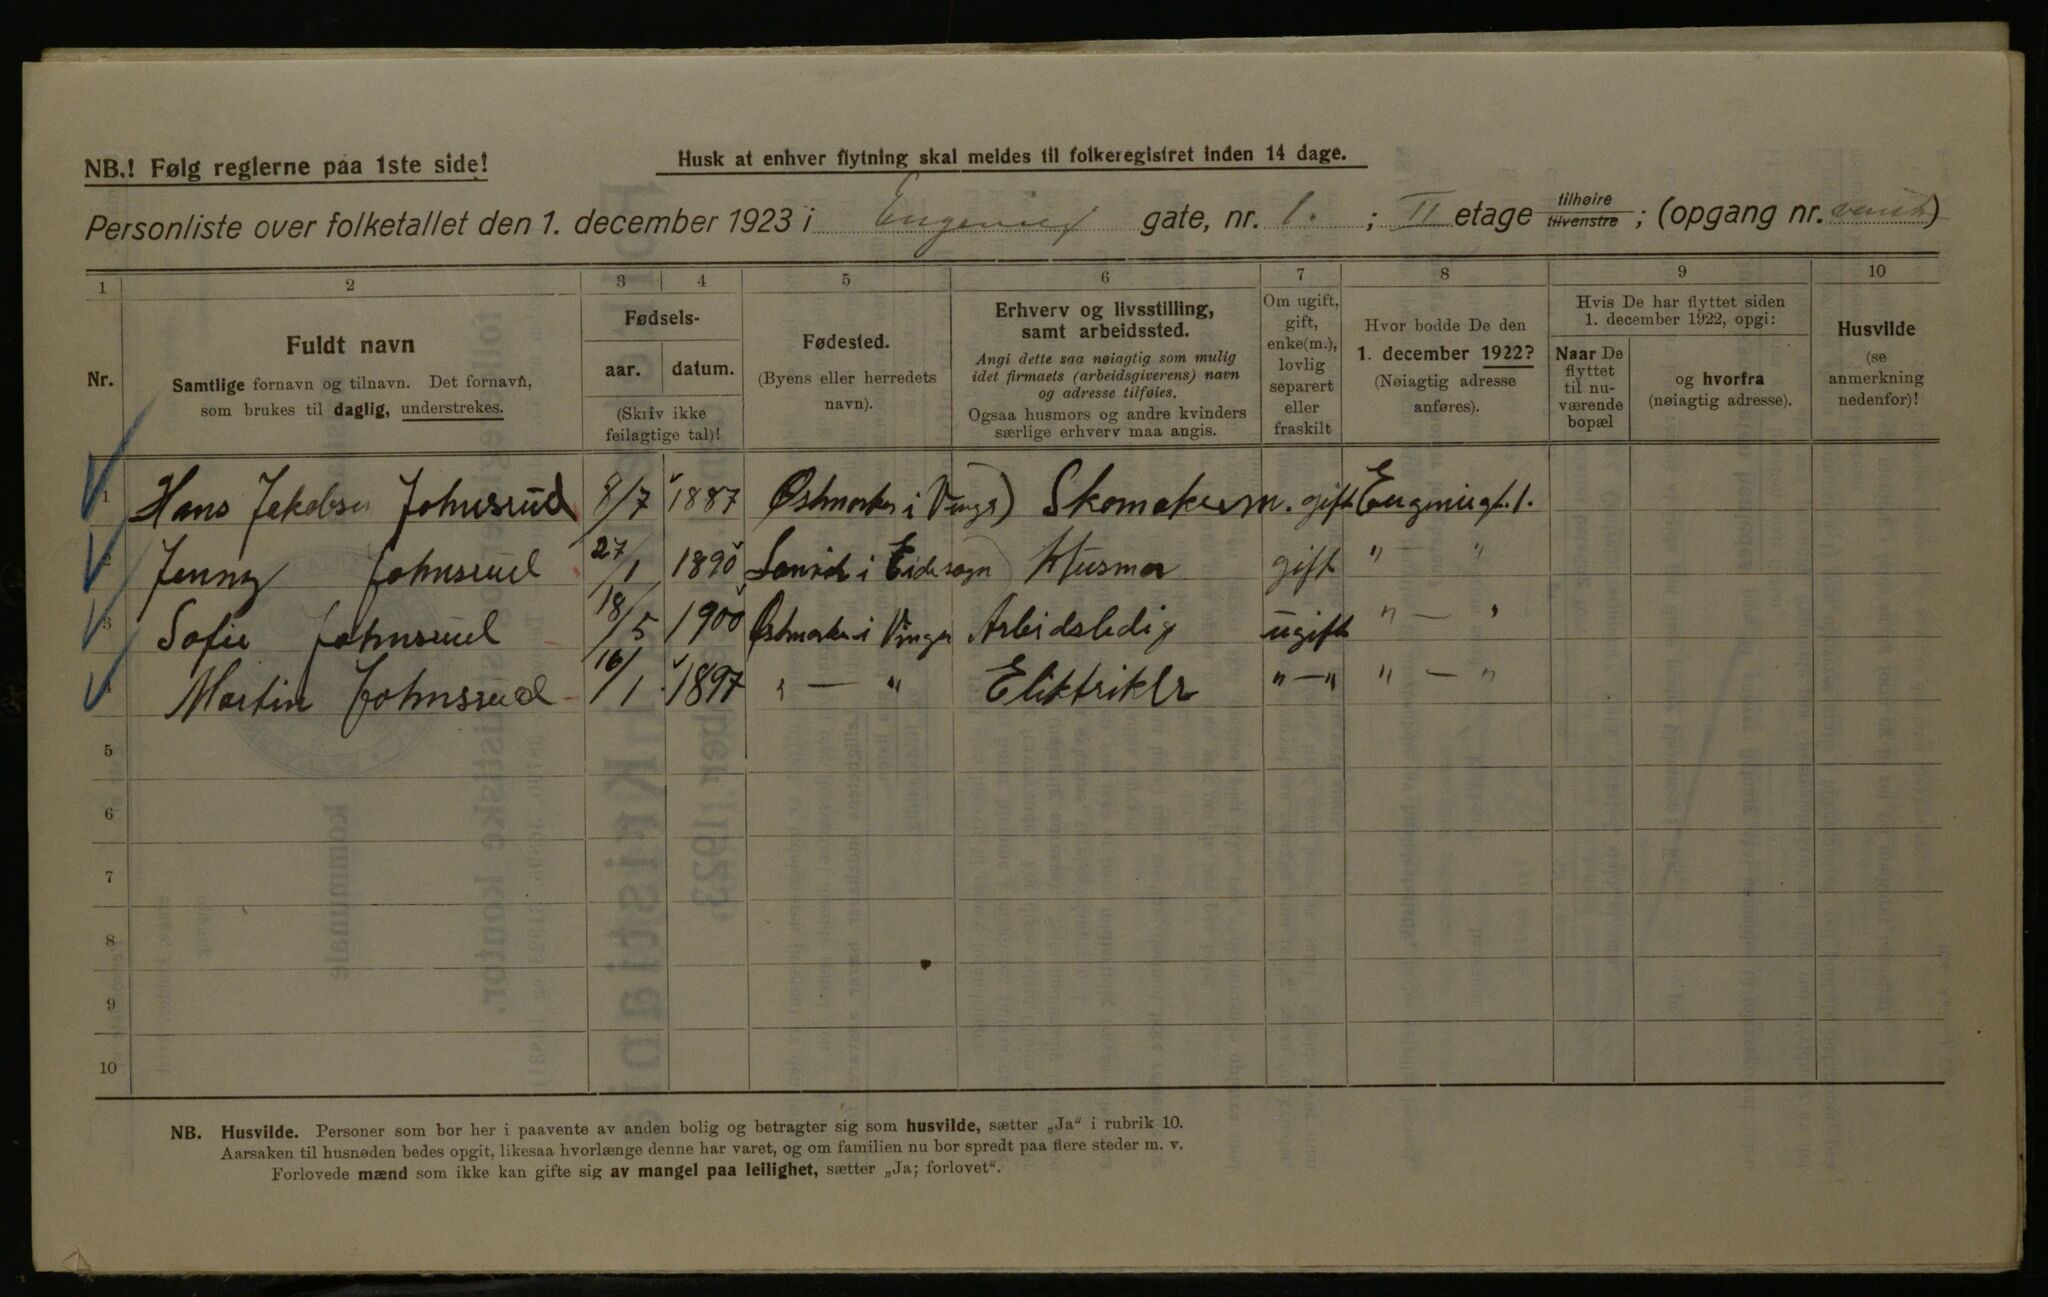 NB.! Følg reglerne paa 1ste side!
Husk at enhver flytning skal meldes til folkeregistret inden 14 dage.
Personliste over folketallet den 1. december 1923 i Eugenies gate, nr. 1. ; II etage tilhøire tilvenstre ; (opgang nr. )
1 2 3 4 5 6 7 8 9 10
Nr.
Fuldt navn
Samtlige fornavn og tilnavn. Det fornavn,
som brukes til daglig, understrekes.
Fødsels-
aar. datum.
(Skriv ikke
feilagtige tal)!
Fødested.
(Byens eller herredets
navn).
Erhverv og livsstilling,
samt arbeidssted.
Angi dette saa nøiagtig som mulig
idet firmaets (arbeidsgiverens) navn
og adresse tilføies.
Ogsaa husmors og andre kvinders
særlige erhverv maa angis.
Om ugift,
gift,
enke(m.),
lovlig
separert
eller
fraskilt
Hvor bodde De den
1. december 1922?
(Nøiagtig adresse
anføres).
Hvis De har flyttet siden
1. december 1922, opgi:
Naar De
flyttet
til nu-
værende
bopæl
og hvorfra
(nøiagtig adresse).
Husvilde
(se
anmerkning
nedenfor)!
1 Hans Jakobsen Johnsrud 8/7 1887 Østmarka i Vinger) Skomakerm. gift Eugenigt. 1.
2 Jenny Johnsrud 27/1 1890 i Eidesogn Husmor gift " — "
3 Sofie Johnsrud 18/5 1900 Østmarka i Vinger Arbeidsledig ugift " — "
4 Martin Johnsrud 16/1 1897 " — " Eliktriker " — " " — "
5
6
7
8
9
10
NB. Husvilde. Personer som bor her i paavente av anden bolig og betragter sig som husvilde, sætter „Ja" i rubrik 10.
Aarsaken til husnøden bedes opgit, likesaa hvorlænge denne har varet, og om familien nu bor spredt paa flere steder m. v.
Forlovede mænd som ikke kan gifte sig av mangel paa leilighet, sætter „Ja; forlovet".